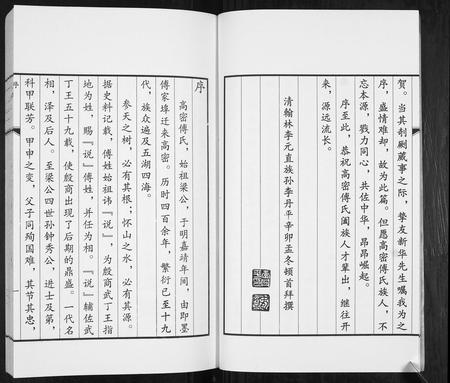 贺。当其剞劂蒇事之际，挚友新华先生嘱我为之
序，盛情难却，故为此篇。但愿高密傅氏族人，不
忘本源，戮力同心，共佐中华，昂昂崛起。
序至此，恭祝高密傅氏阖族人才辈出，继往开
来，源远流长。
清翰林李元直族孙李丹平辛卯孟冬顿首拜撰
序
高密傅氏，始祖梁公，于明嘉靖年间，由即墨
傅家埠迁来高密。历时四百余年，繁衍已至十九
代，族众遍及五湖四海。
参天之树，必有其根；怀山之水，必有其源。
据史料记载，傅姓始祖讳『说』，为殷商武丁王指
地为姓，赐『说』傅姓，并任为相。『说』辅佐武
丁王五十九载，使殷商出现了后期的鼎盛。一代名
相，泽及后人。至梁公四世孙钟秀公，进士及第，
科甲联芳。甲申之变，父子同殉国难，其节其忠，
序
一